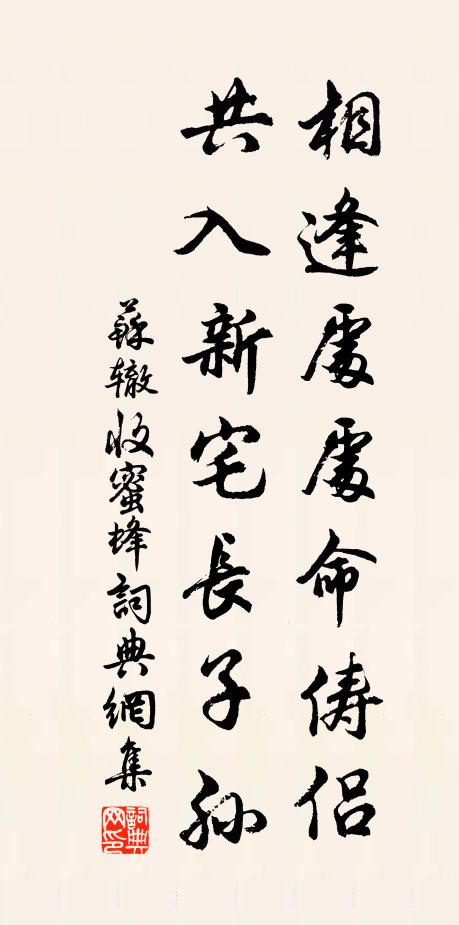 相逢處處命儔侶
共入新宅長子孫
蘇轍收蜜蜂詞典網集
詞典網印